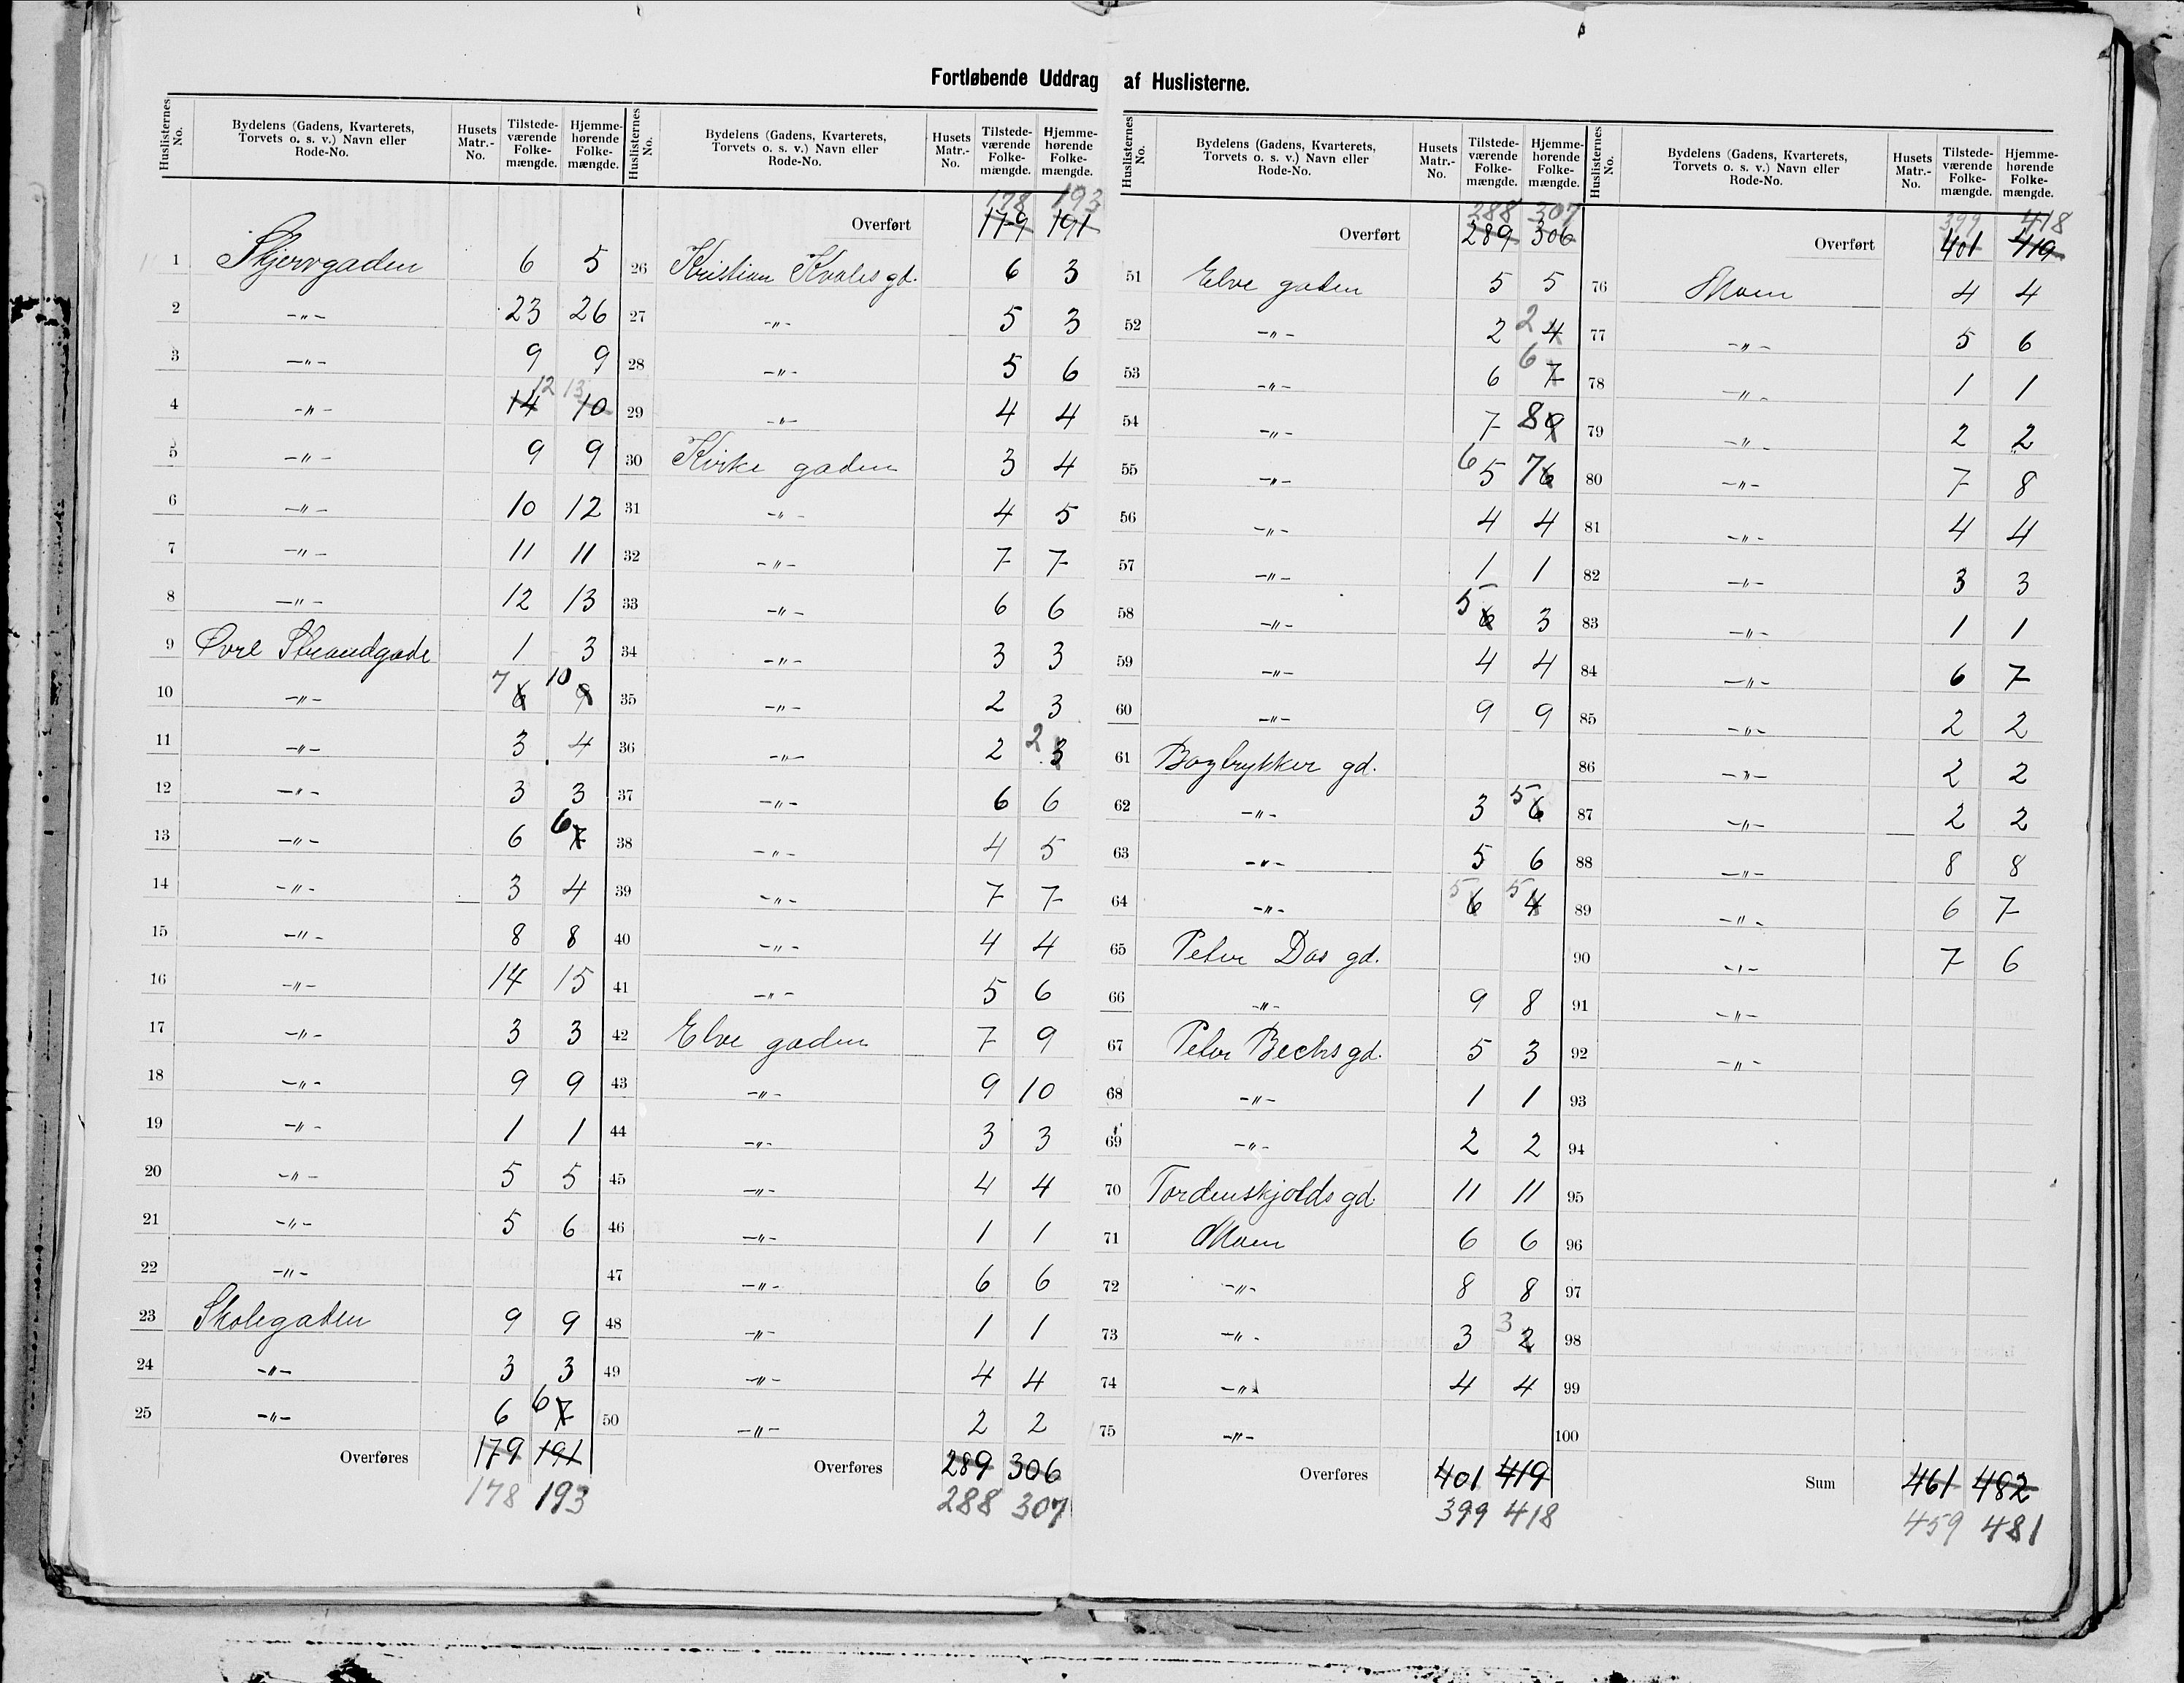 Fortløbende Uddrag af Huslisterne.
Huslisternes No. | Bydelens (Gadens, Kvarterets, Torvets o. s. v.) Navn eller Rode-No. | Husets Matr.-No. | Tilstede-værende Folke-mængde. | Hjemme-hørende Folke-mængde.
1 Skjervgaden 6 5
2 -„- 23 26
3 -„- 9 9
4 -„- 14 12 10 13
5 -„- 9 9
6 -„- 10 12
7 -„- 11 11
8 -„- 12 13
9 Øvre Strandgade 1 3
10 -„- 7 6 10 9
11 -„- 3 4
12 -„- 3 3
13 -„- 6 6 7
14 -„- 3 4
15 -„- 8 8
16 -„- 14 15
17 -„- 3 3
18 -„- 9 9
19 -„- 1 1
20 -„- 5 5
21 -„- 5 6
22 -„-
23 Skolegaden 9 9
24 -„- 3 3
25 -„- 6 6 7
Overføres 179 191
178 193
Huslisternes No. | Bydelens (Gadens, Kvarterets, Torvets o. s. v.) Navn eller Rode-No. | Husets Matr.-No. | Tilstede-værende Folke-mængde. | Hjemme-hørende Folke-mængde.
178 193
Overført 179 191
26 Kristian Kvales gd. 6 3
27 -„- 5 3
28 -„- 5 6
29 -„- 4 4
30 Kirke gaden 3 4
31 -„- 4 5
32 -„- 7 7
33 -„- 6 6
34 -„- 3 3
35 -„- 2 3
36 -„- 2 2 3
37 -„- 6 6
38 -„- 4 5
39 -„- 7 7
40 -„- 4 4
41 -„- 5 6
42 Elve gaden 7 9
43 -„- 9 10
44 -„- 3 3
45 -„- 4 4
46 -„- 1 1
47 -„- 6 6
48 -„- 1 1
49 -„- 4 4
50 -„- 2 2
Overføres 289 306
288 307
Huslisternes No. | Bydelens (Gadens, Kvarterets, Torvets o. s. v.) Navn eller Rode-No. | Husets Matr.-No. | Tilstede-værende Folke-mængde. | Hjemme-hørende Folke-mængde.
288 307
Overført 289 306
51 Elve gaden 5 5
52 -„- 2 2 4
53 -„- 6 6 7
54 -„- 7 8 9
55 -„- 6 5 7 6
56 -„- 4 4
57 -„- 1 1
58 -„- 5 6 3
59 -„- 4 4
60 -„- 9 9
61 Bogtrykker gd.
62 -„- 3 5 6
63 -„- 5 6
64 -„- 5 6 5 4
65 Peter Das gd.
66 -„- 9 8
67 Peter Bechs gd. 5 3
68 -„- 1 1
69 -„- 2 2
70 Tordenskjolds gd. 11 11
71 Moen 6 6
72 -„- 8 8
73 -„- 3 3 2
74 -„- 4 4
75 -„-
Overføres 401 419
399 418
Huslisternes No. | Bydelens (Gadens, Kvarterets, Torvets o. s. v.) Navn eller Rode-No. | Husets Matr.-No. | Tilstede-værende Folke-mængde. | Hjemme-hørende Folke-mængde.
399 418
Overført 401 419
76 Moen 4 4
77 -„- 5 6
78 -„- 1 1
79 -„- 2 2
80 -„- 7 8
81 -„- 4 4
82 -„- 3 3
83 -„- 1 1
84 -„- 6 7
85 -„- 2 2
86 -„- 2 2
87 -„- 2 2
88 -„- 8 8
89 -„- 6 7
90 -„- 7 6
91 -„-
92 -„-
93
94
95
96
97
98
99
100
Sum 461 482
459 481